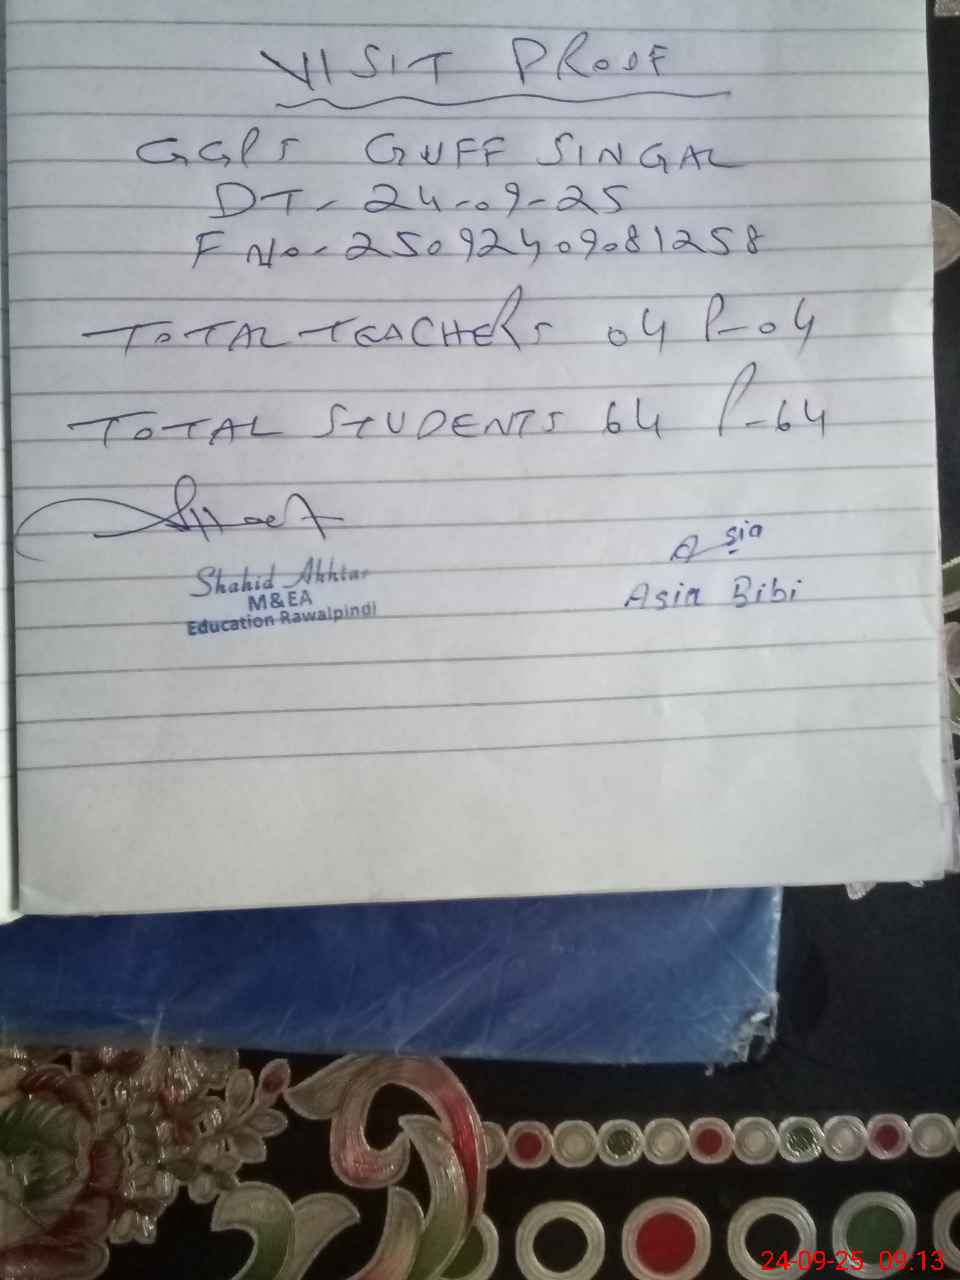 VISIT PROOF
GGPS GUFF SINGAL
DT- 24-09-25
F No- 25092409081258
TOTAL TEACHERS 04 P-04
TOTAL STUDENTS 64 P-64
Shahid Akhtar
M&EA
Education Rawalpindi
Asia
Asia Bibi
24-09-25 09:13